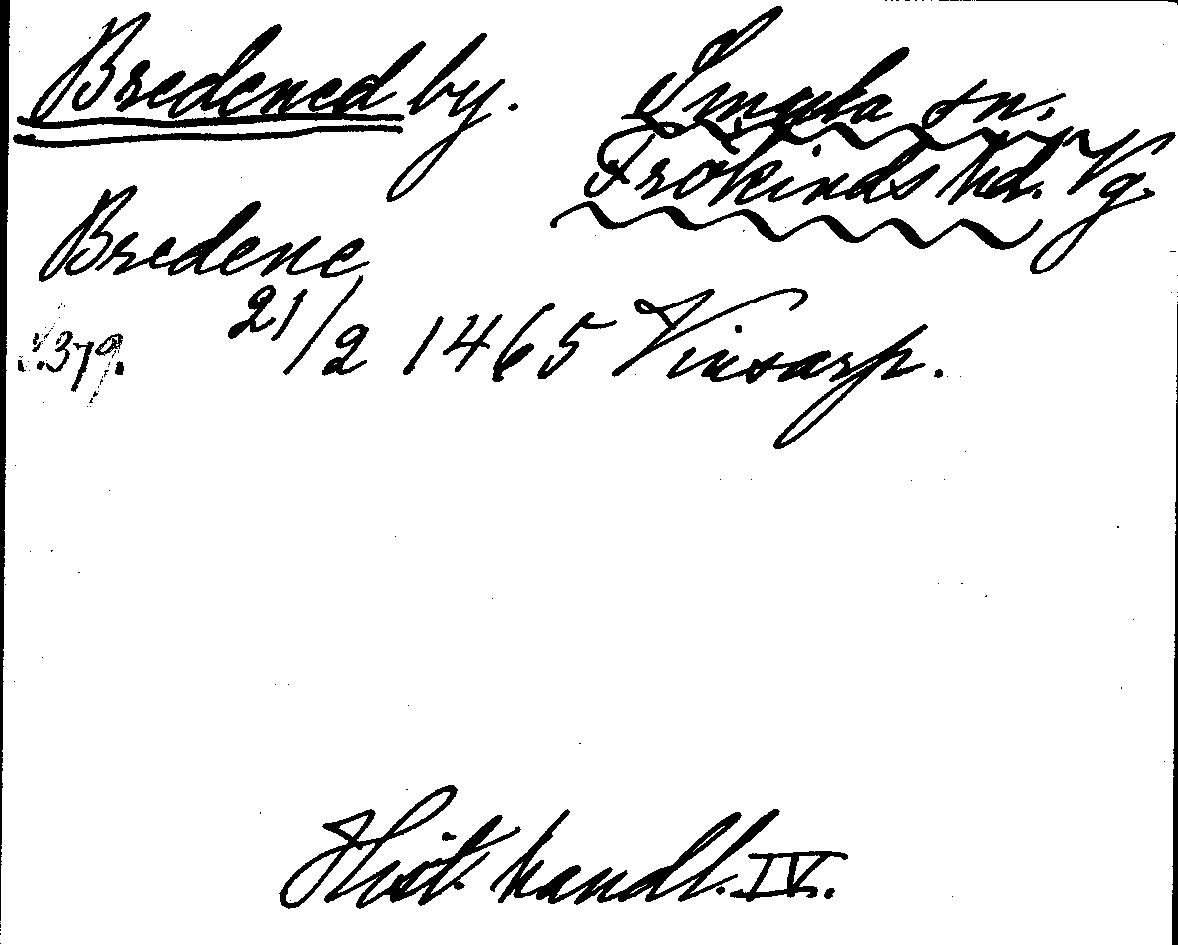 Bredened by. Smula sn.
Frökinds hd. Vg.
Bredene
S.379. 21/2 1465 Vinsarp.
Hist. handl. IV.